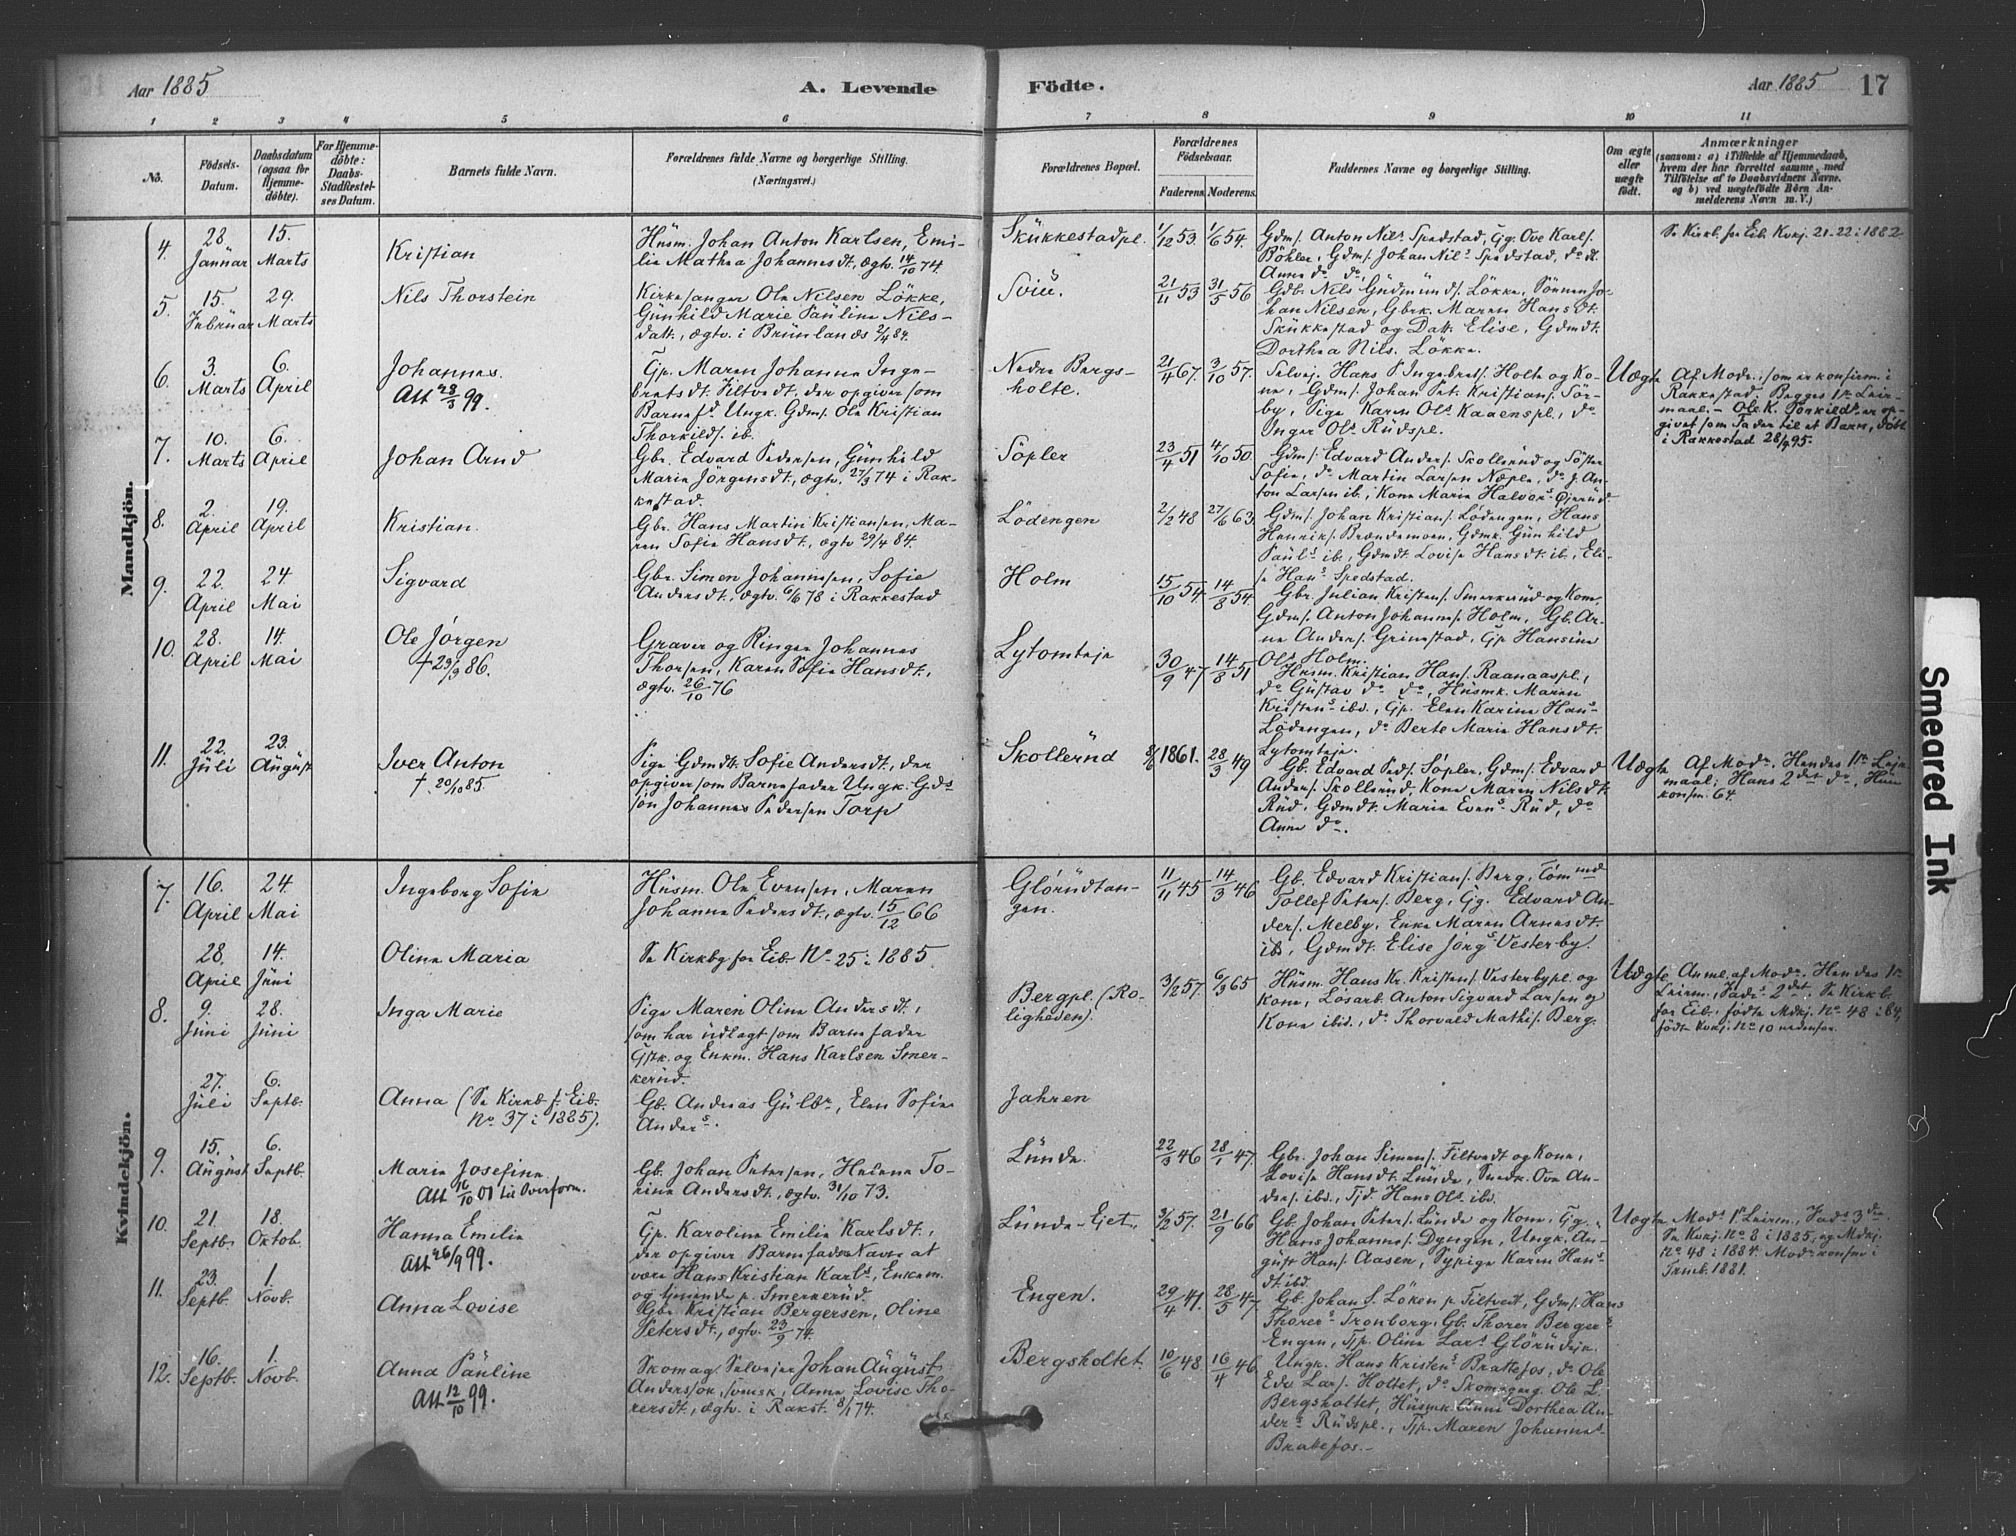 Aar 1885 A. Levende Födte. Aar 1885 17
1 2 3 4 5 6 7 8 9 10 11
No. Födsels-Datum. Daabsdatum (ogsaa for Hjemmedöbte). For Hjemmedöbte: Daabs-Stadfæstelses Datum. Barnets fulde Navn. Forældrenes fulde Navne og borgerlige Stilling. (Næringsvei.) Forældrenes Bopæl. Forældrenes Födselsaar. Faderens. Moderens. Faddernes Navne og borgerlige Stilling. Om ægte eller uægte födt. Anmærkninger (saasom: a) i Tilfælde af Hjemmedaab, hvem der har forrettet samme, med Tilföielse af to Daabsvidners Navne, og b) ved uægtefödte Börn Anmelderens Navn m. V.)
Mandkjön.
4. 28. Januar 15. Marts Kristian
Husm. Johan Anton Karlsen, Emi-
lie Mathea Johannesdt., ægtv. 14/10 74.
Skükkestadpl. 1/12 53. 1/6 54.
Gdms. Anton Nils. Spedstad, Gg. Ove Karls.
Böhler, Gdms. Johan Nils. Spedstad, do dt.
Anna do do
Se Kirkb. for Eib. Kvkj. 21-22 i 1882
5. 15. Februar 29. Marts Nils Thorstein
Kirkesanger Ole Nilsen Lökke,
Gunhild Marie Pauline Nils-
datt., ægtv. i Brunlanæs 2/4 84.
21/11 53 31/5 56
Gdb. Nils Gudmunds. Lökke, Sönnen Jo-
han Nilsen, Gbrk. Maren Hansdt.
Skükkestad og Datt. Elise, Gdmdt.
Dorthea Nils. Lökke.
6. 3. Marts 6. April Johannes.
Att 23/3 99.
Tjp. Maren Johanne Inge-
bretsdt. Filtvedt, der opgiver som
Barnefd Ungk. Gdms. Ole Kristian
Thorkilds. ib.
Nedre Bergs-
holte.
21/4 67. 3/10 57.
Selvej. Hans P. Ingebrets. Holte og Ko-
ne, Gdms. Johan Pet. Kristians. Sör-
by, Pige Karen Ols. Kaaenspl., do
Inger Ols. Rüdspl.
Uægte
Af Mode., som er konfirm. i
Rakkestad. Begges 1ste Leir-
maal. - Ole K. Torkilds. er op-
givet som Fader til et Barn, döbt
i Rakkestad 28/4 95.
7. 10. Marts 6. April Johan Arnd
Gbr. Edvard Pedersen, Gunhild
Marie Jörgensdt., ægtv. 27/3 74 i Rak-
kestad
Söpler 23/4 51 4/10 50.
Gdms. Edvard Anders. Skollerud og Söster
Sofie, do Martin Larsen Næple, do J. An-
ton Larsen ib., Kone Marie Halvors.
8. 2. April 19. April Kristian.
Gbr. Hans Martin Kristiansen, Ma-
ren Sofie Hansdt., ægtv 29/4 84.
Lödengen 2/2 48 27/6 63
Gdms. Johan Kristians. Lödengen, Hans
Henriks. Brændemoen, Gdmk. Gunhild
Pauls. ib., Gdmdt. Lovise Hansdt. ib., Eli-
se Hans. Spedstad.
9. 22. April 24 Mai Sigvard
Gbr. Simen Johannesen, Sofie
Andersdt., ægtv. 6/6 78 i Rakkestad
Holm 15/10 54 14/8 54
Gbr. Julian Kristens. Smerkerud og Kone,
Gdms. Anton Johannes. Holm, Gb. Ar-
ne Anders. Grimstad, Tjp Hansine
Ols. Holm.
10. 28. April 14. Mai Ole Jörgen
† 29/9 86.
Graver og Ringer Johannes
Thorsen, Karen Sofie Hansdt.,
ægtv. 26/10 76
Lytomteje 30/9 47 14/8 51
Husm. Kristian Hans. Raanaaspl.,
do Gustav do do, Husmk. Maren
Kristens. ibd., Tjp. Elen Karine Hans.
Lödengen, do Berte Marie Hansdt.
Lytomteje.
11. 22. Juli 23. August Iver Anton
† 20/10 85.
Pige Gdmdt. Sofie Andersdt., der
opgiver som Barnefader Ungk. Gds.
sön Johannes Pedersen Torp
Skollerud 8/6 1861. 28/3 49
Gb. Edvard Peds. Söpler, Gdms. Edvard
Anders. Skollerud, Kone Maren Nilsdt.
Rud, Gdmdt. Marie Evens. Rud, do
Anne do.
Uægte
Af Mode. Hendes 1ste Leir-
maal; Hans 2det do, Hun
konfm. 64.
Kvindekjön.
7. 16. April 24. Mai Ingeborg Sofie
Husm. Ole Evensen, Maren
Johanne Pedersdt., ægtv. 15/12 66
Glörudtan-
gen.
11/11 45 14/3 46
Gb. Edvard Kristians. Berg, Tömmd
Tollef Peters. Berg, Gg. Edvard An-
ders. Melby, Enke Maren Arnesdt.
ib., Gdmdt. Elise Jörgs. Vesterby.
28. April 14. Juni Oline Maria
Se Kirkbg for Eib. No 25 i 1885
8. 9. Juni 28. Juni Inga Marie
Pige Maren Oline Andersdt.,
som har udlagt som Barnefader
Gstk. og Enkm. Hans Karlsen Smer-
kerud.
Bergpl. (Ro-
ligheden).
3/2 57. 6/3 65
Husm. Hans Kr. Kristens. Vesterbypl. og
Kone, Losarb. Anton Sigvard Larsen og
Kone ibid., do Thorvald Mathis. Berg.
Uægte
Anml. af Mode. Hendes 1ste
Leirm., Fads. 2det. Se Kirkb.
for Eib., födte Mdkj. No 48 i 84,
födte Kvkj. No 10 nedenfor.
27. Juli 6. Septb. Anna (Se Kirkb. f. Eib.
No. 37 i 1885).
Gb. Andreas Gulbr., Elen Sofie
Anders.
Jahren
9. 15. August 6. Septb. Maria Josefine
Att 16/10 01 til Overform.
Gb. Johan Petersen, Helene To-
rine Andersdt., ægtv. 31/10 73.
Lunde. 22/3 46 28/1 47.
Gbr. Johan Simens. Filtvedt og Kone,
Lovise Hansdt. Lunde, Snedk. Ove An-
ders. ibd., Tjd. Hans Ols. ibd.
10. 21. Septb. 18. Oktob. Hanna Emilie
Att 26/9 99.
Tjp. Karoline Emilie Karlsdt.,
der opgiver Barnefaderens Navn at
være Hans Kristian Karls., Enkem.
og tjenende p. Smerkerud.
Lunde-Ejet, 3/2 57. 21/9 66
Gb. Johan Peters. Lunde og Kone, Gg.
Hans Johannes. Dyngen, Ungk. Au-
gust Hans. Aasen, Sypige Karen Hans.
dt ibd.
Uægte
Mods. 1ste Leirm., Fads 3die
Se Kvkj. No 8 i 1885, og Mdkj.
No 48 i 1884. Modr konfm i
Trmb. 1881.
11. 23. Septb. 1. Novb. Anna Lovise
Gbr. Kristian Bergersen, Oline
Petersdt., ægtv. 23/9 74.
Engen. 29/4 41. 28/5 47.
Gb. Johan S. Löken p. Filtvedt, Gdms. Hans
Thorers. Tronborg, Gb. Thorer Bergers.
Engen, Tjp. Oline Lars. Glörudeje.
12. 16. Septb. 1. Novb. Anna Pauline
Att 12/10 99.
Skomag. Selvejer Johan August
Andersson, svensk, Anne Lovise Tho-
rersdt., ægtv. i Rakst. 8/1 74.
Bergsholtet. 10/6 48 16/4 46
Ungk. Hans Kristens. Brattefos, do Ole
Edv. Lars. Holtet, do Skomagerg. Ole L.
Bergsholtet, Husmk. Anne Dorthea An-
ders. Rudspl., Tjp. Maren Johannes.
Brattefos.-
Smeared Ink